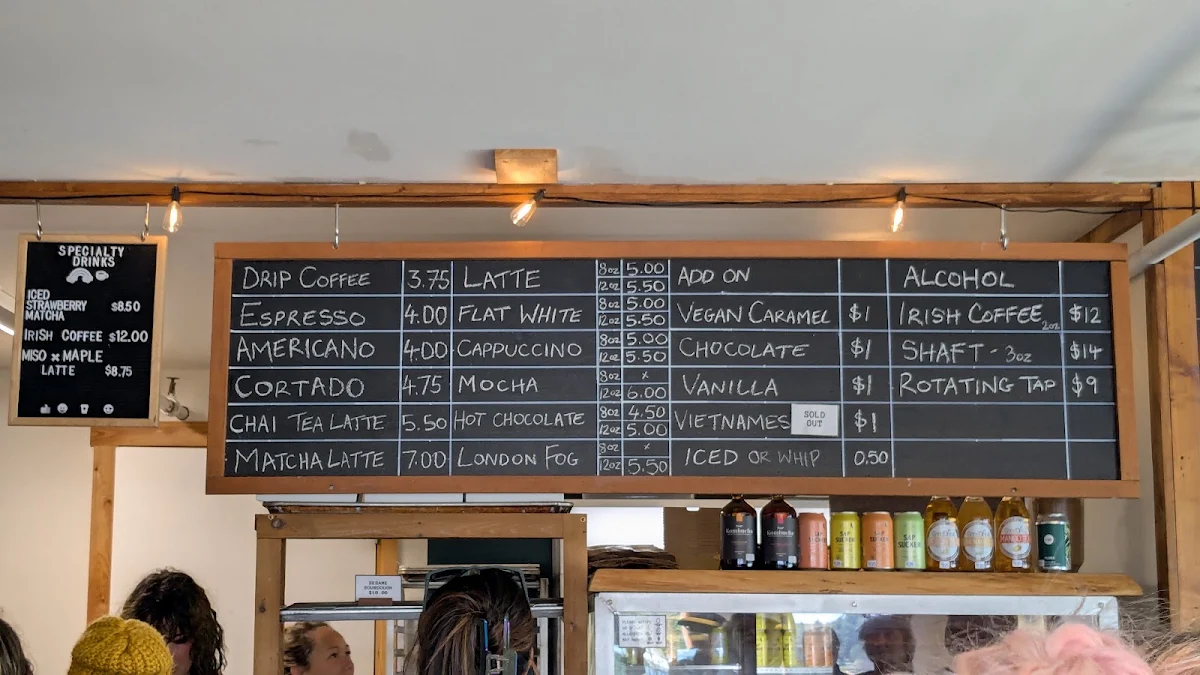 SPECIALTY
DRINKS
ICED
STRAWBERRY $8.50
MATCHA
IRISH COFFEE $12.00
MISO x MAPLE
LATTE $8.75
DRIP COFFEE 3.75
ESPRESSO 4.00
AMERICANO 4.00
CORTADO 4.75
CHAI TEA LATTE 5.50
MATCHA LATTE 7.00
LATTE 8oz 5.00
12oz 5.50
FLAT WHITE 8oz 5.00
12oz 5.50
CAPPUCCINO 8oz 5.00
12oz 5.50
MOCHA 8oz x
12oz 6.00
HOT CHOCOLATE 8oz 4.50
12oz 5.00
LONDON FOG 8oz x
12oz 5.50
ADD ON
VEGAN CARAMEL $1
CHOCOLATE $1
VANILLA $1
VIETNAMES SOLD OUT $1
ICED OR WHIP 0.50
ALCOHOL
IRISH COFFEE 2oz $12
SHAFT - 3oz $14
ROTATING TAP $9
SESAME
SOURDOUGH
$10.00
Kombucha
Kombucha
SAP
SUCKER
SAP
SUCKER
SAP
SUCKER
SAP
SUCKER